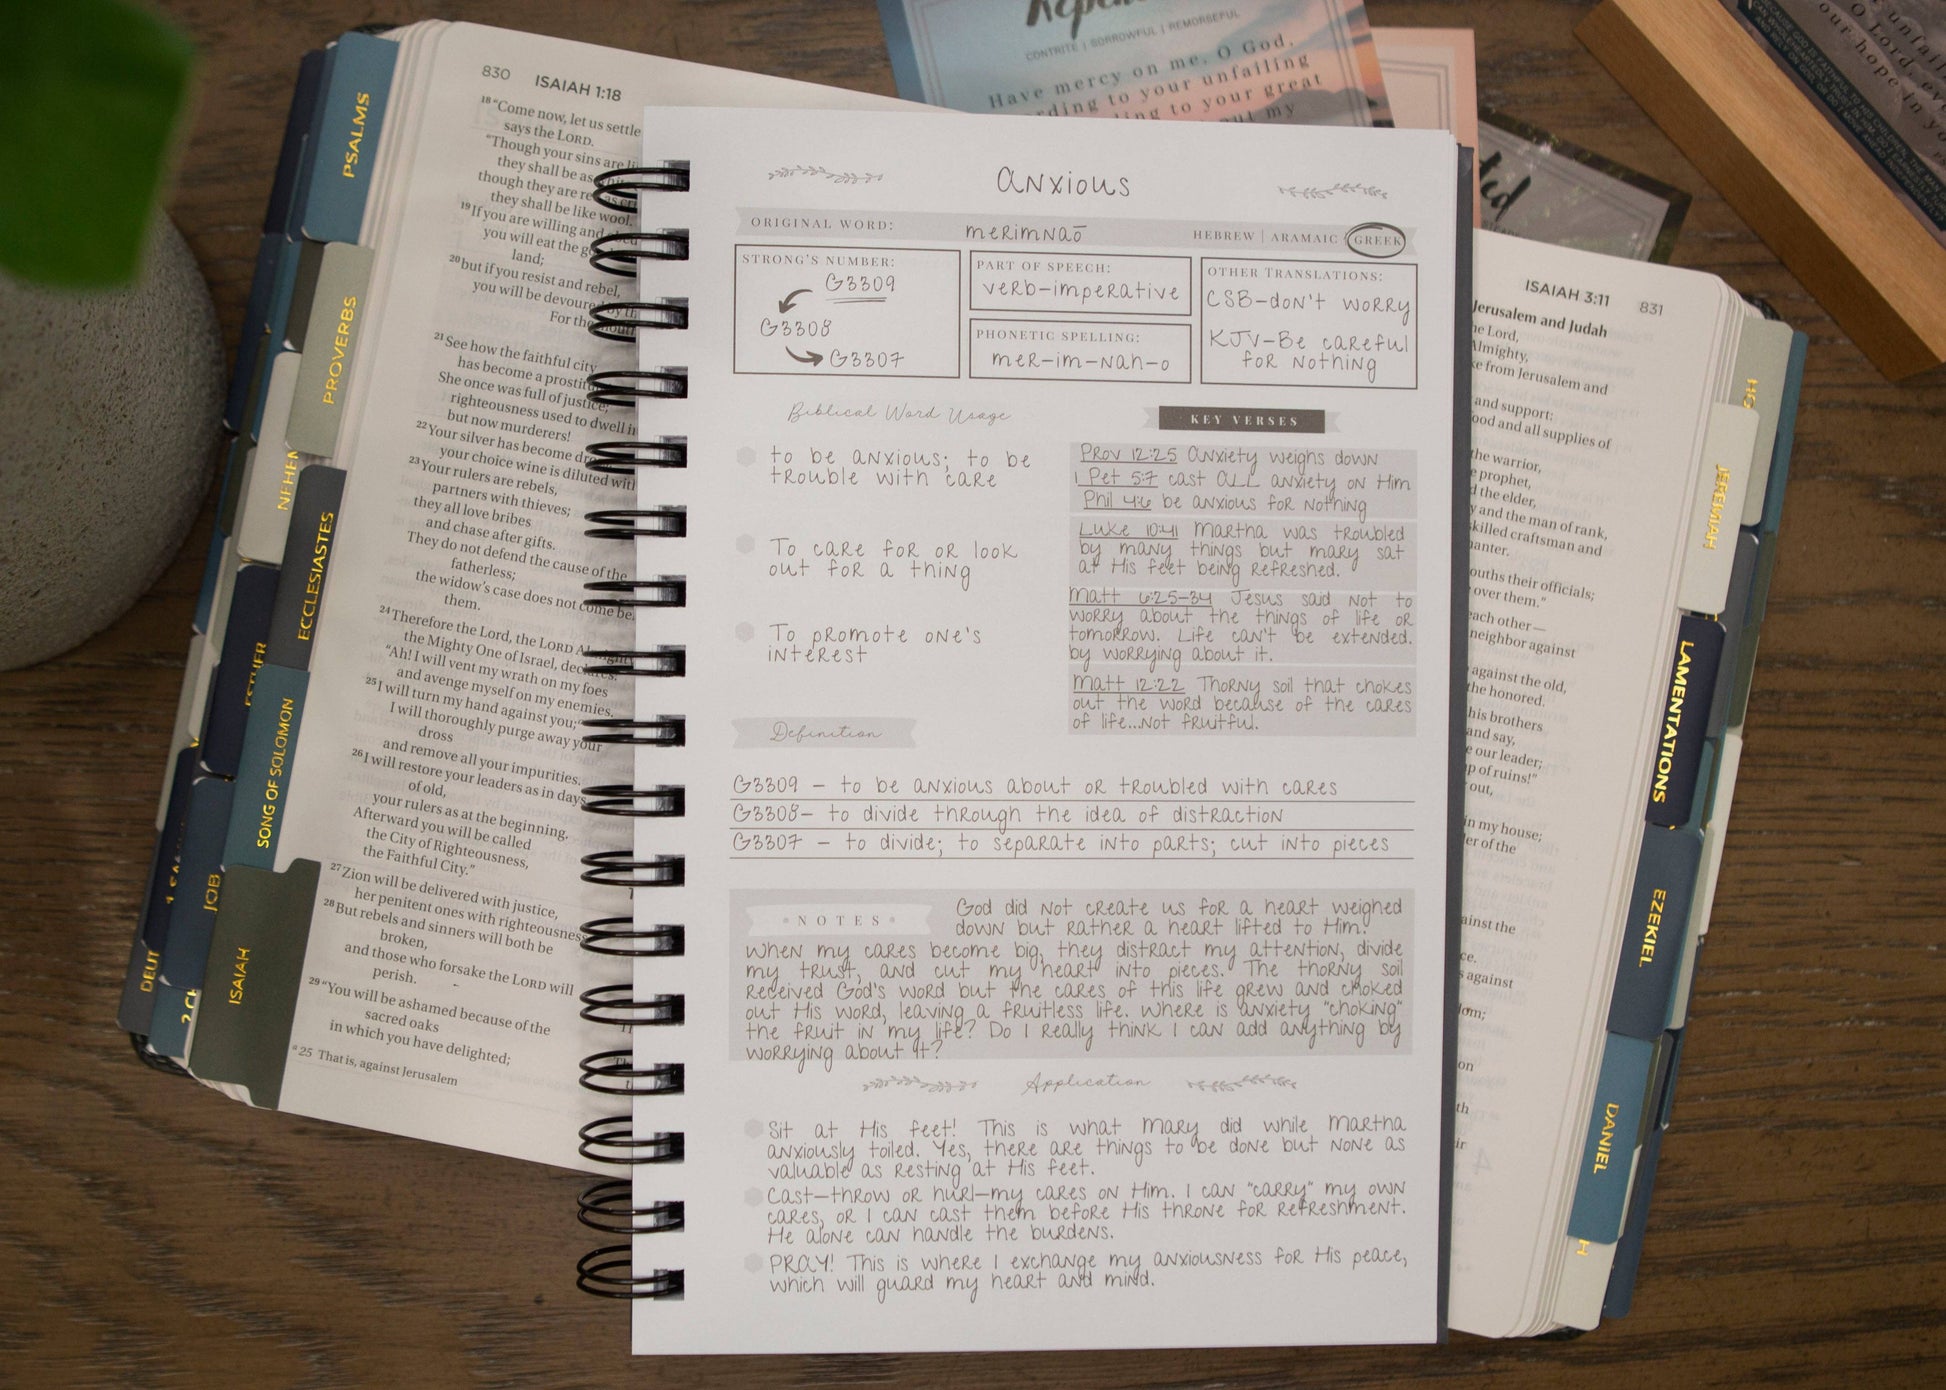 Have mercy on me, O God,
to your unfailing
to your great
my
CONTRITE | SORROWFUL | REMORSEFUL
PSALMS
PROVERBS
NEHEM
ECCLESIASTES
ESTHER
SONG OF SOLOMON
JOB
ISAIAH
DEUT
830 ISAIAH 1:18
18 "Come now, let us settle
says the LORD.
"Though your sins are
they shall be as
though they are red as
they shall be like wool.
19 If you are willing and
you will eat the
land;
20 but if you resist and rebel,
you will be devoured
For the
21 See how the faithful city
has become a
She once was full of justice;
righteousness used to dwell
but now murderers!
22 Your silver has become
your choice wine is diluted
23 Your rulers are rebels,
partners with thieves;
they all love bribes
and chase after gifts.
They do not defend the cause of the
fatherless;
the widow's case does not come
them.
24 Therefore the Lord, the LORD
the Mighty One of Israel,
"Ah! I will vent my wrath on my foes
and avenge myself on my enemies.
25 I will turn my hand against you;
I will thoroughly purge away your
dross
and remove all your impurities.
26 I will restore your leaders as in days
of old,
your rulers as at the beginning.
Afterward you will be called
the City of Righteousness,
the Faithful City."
27 Zion will be delivered with justice,
her penitent ones with righteousness.
28 But rebels and sinners will both be
broken,
and those who forsake the LORD will
perish.
29 "You will be ashamed because of the
sacred oaks
in which you have delighted;
a 25 That is, against Jerusalem
anxious
ORIGINAL WORD: merimnaō HEBREW | ARAMAIC | GREEK
STRONG'S NUMBER:
G3309
G3308
G3307
PART OF SPEECH:
verb-imperative
PHONETIC SPELLING:
mer-im-nah-o
OTHER TRANSLATIONS:
CSB-don't worry
KJV-Be careful
for nothing
Biblical Word Usage
to be anxious; to be
trouble with care
To care for or look
out for a thing
To promote one's
interest
KEY VERSES
Prov 12:25 Anxiety weighs down
1 Pet 5:7 cast ALL anxiety on Him
Phil 4:6 be anxious for nothing
Luke 10:41 Martha was troubled
by many things but Mary sat
at His feet being refreshed.
Matt 6:25-34 Jesus said not to
worry about the things of life or
tomorrow. Life can't be extended.
by worrying about it.
Matt 12:22 Thorny soil that chokes
out the word because of the cares
of life...not fruitful.
Definition
G3309 - to be anxious about or troubled with cares
G3308- to divide through the idea of distraction
G3307 - to divide; to separate into parts; cut into pieces
NOTES
God did not create us for a heart weighed
down but rather a heart lifted to Him!
When my cares become big, they distract my attention, divide
my trust, and cut my heart into pieces. The thorny soil
received God's word but the cares of this life grew and choked
out His word, leaving a fruitless life. Where is anxiety "choking"
the fruit in my life? Do I really think I can add anything by
worrying about it?
Application
Sit at His feet! This is what Mary did while Martha
anxiously toiled. Yes, there are things to be done but none as
valuable as resting at His feet.
Cast—throw or hurl—my cares on Him. I can "carry" my own
cares, or I can cast them before His throne for refreshment.
He alone can handle the burdens.
PRAY! This is where I exchange my anxiousness for His peace,
which will guard my heart and mind.
ISAIAH 3:11 831
Jerusalem and Judah
Lord,
Almighty,
from Jerusalem and
and support:
and all supplies of
the warrior,
prophet,
the elder,
and the man of rank,
skilled craftsman and
their officials;
over them."
each other—
neighbor against
against the old,
the honored.
his brothers
and say,
our leader;
of ruins!"
out,
in my house;
of the
against
JEREMIAH
LAMENTATIONS
EZEKIEL
DANIEL